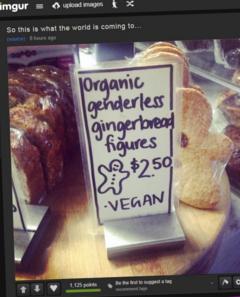 imgur
upload images
So this is what the world is coming to...
8 hours ago
Organic
genderless
gingerbread
figures
$2.50
-VEGAN
1,125 points
Be the first to suggest a tag